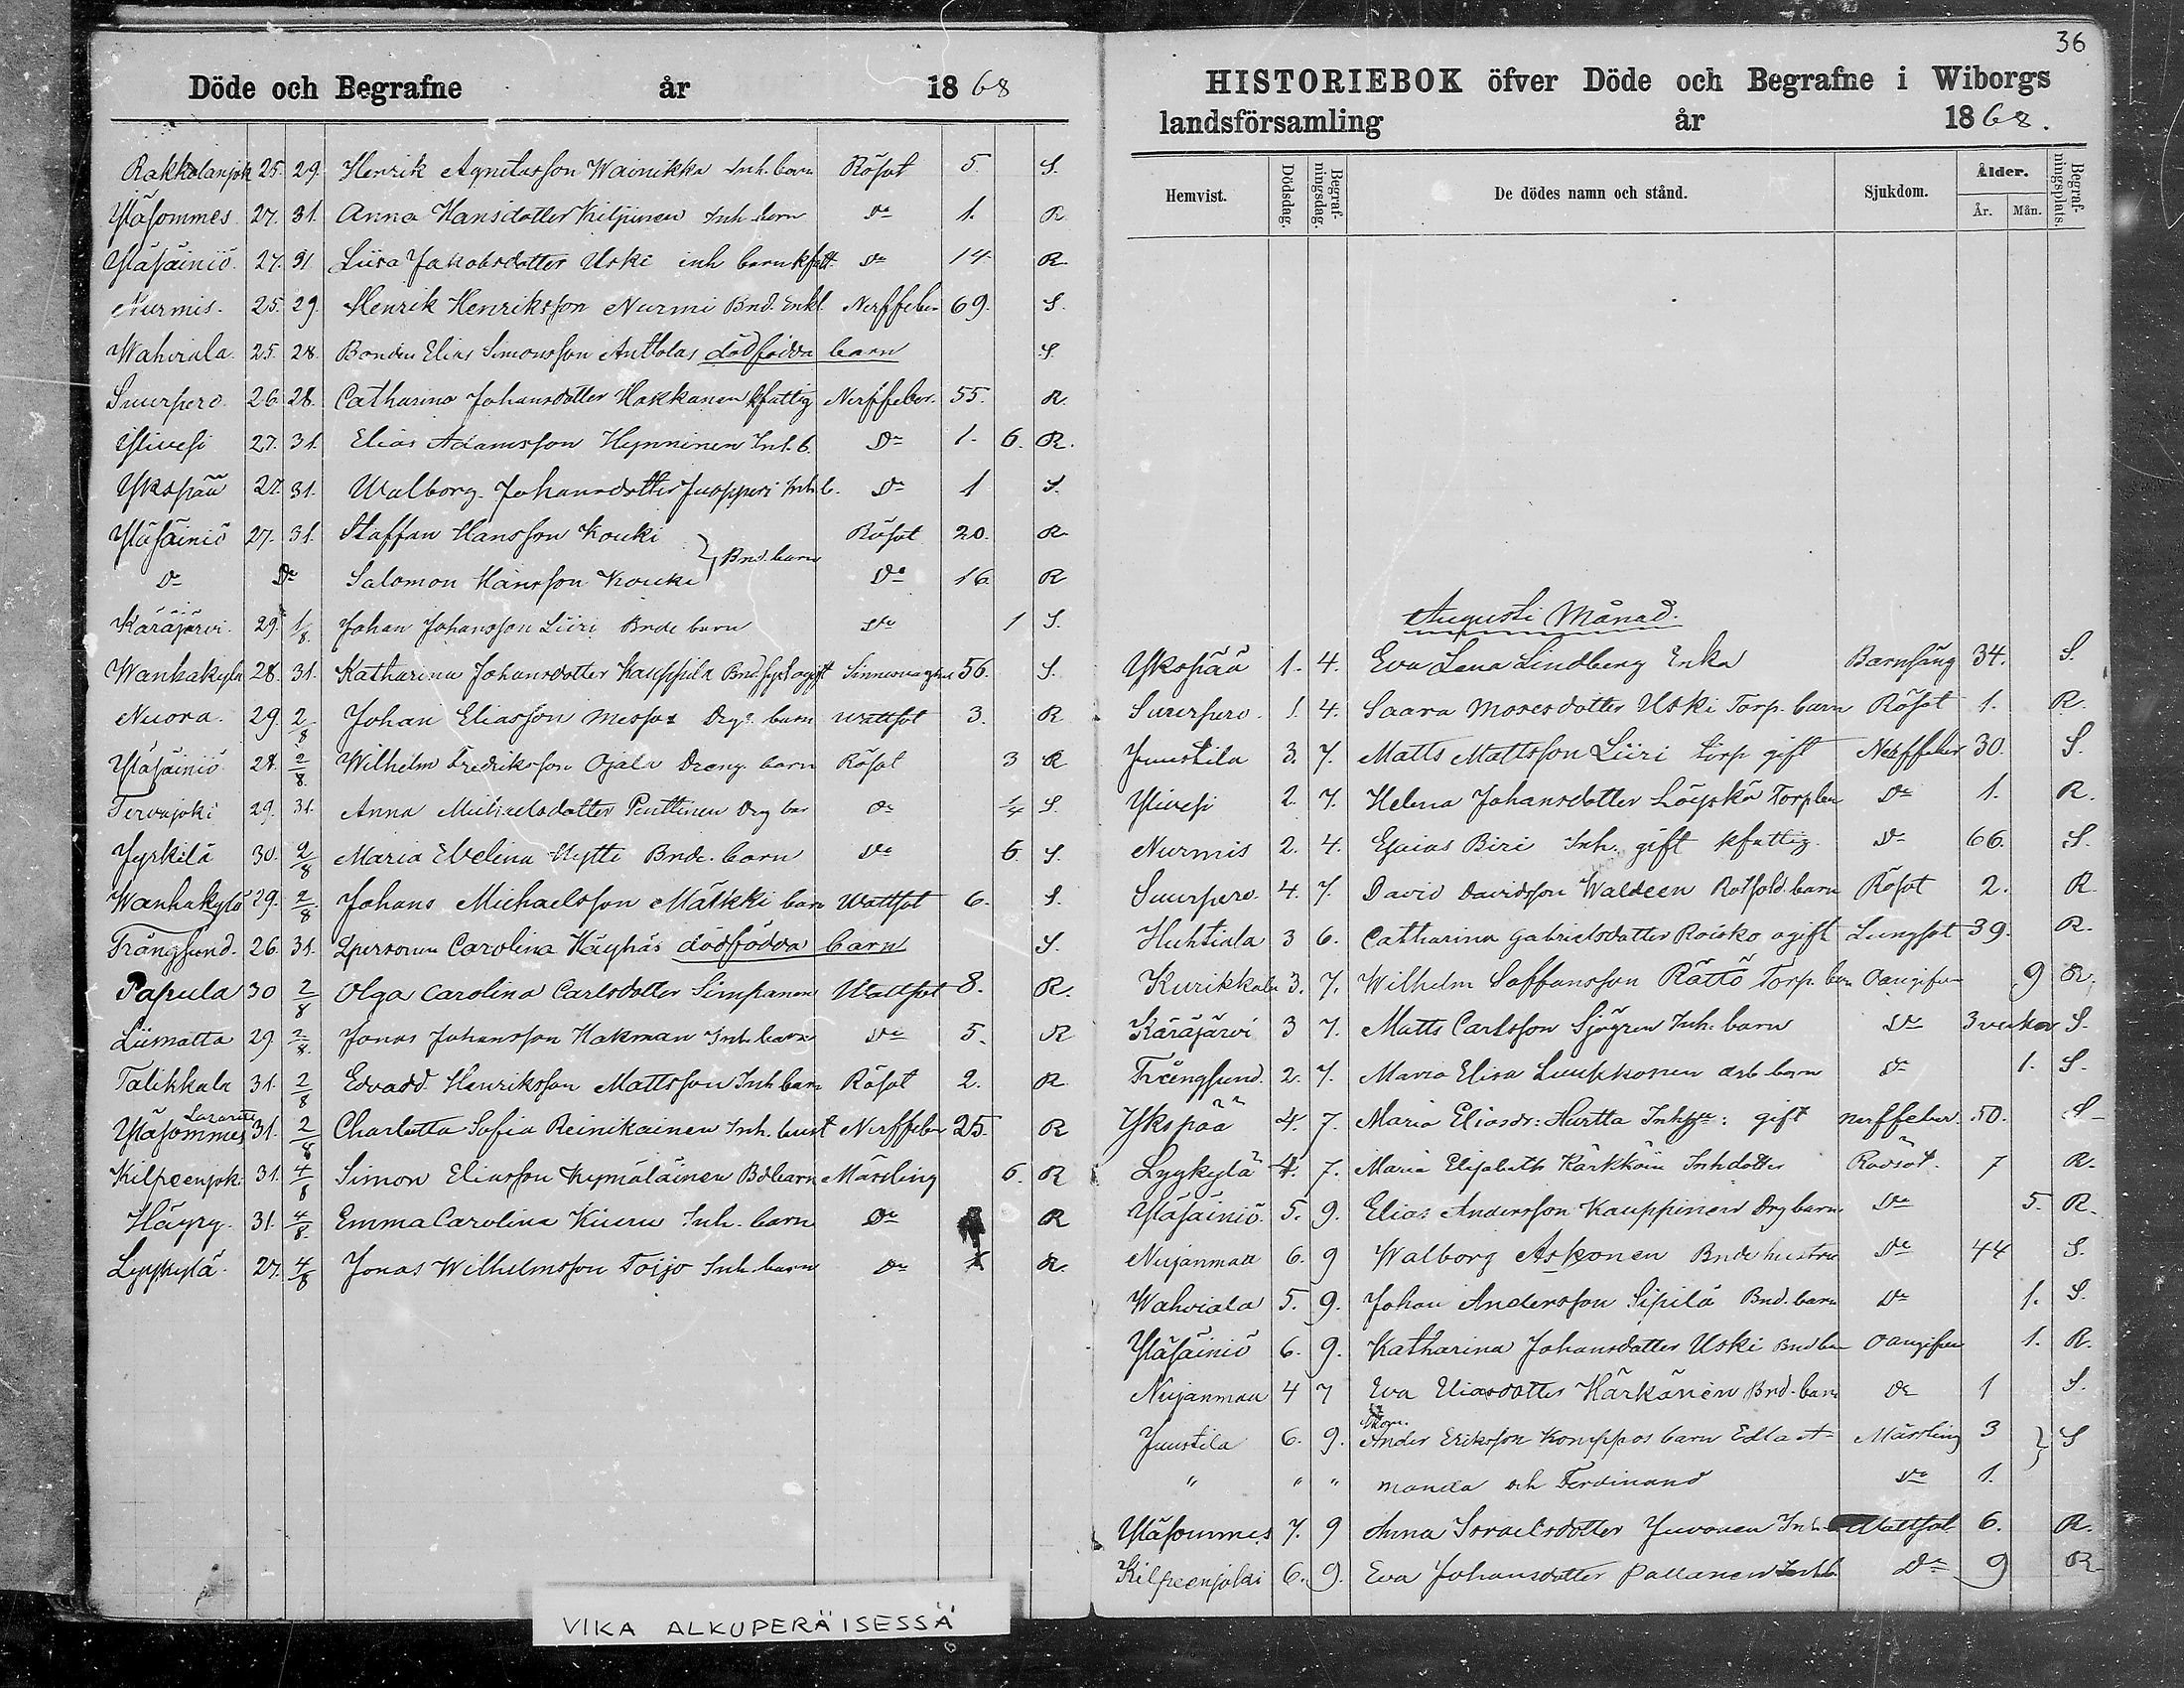 Döde och Begrafne år 1868
Rakkolanjok 25. 29. Henrik Agnetasson Wainikka Inh. barn Rösot 5. S.
Yläsommes. 27. 31. Anna Hansdotter Kiljunen Inh. barn Do 1. R
Yläsäiniö. 27. 31. Liisa Jakobsdotter Uski inh barn kfatt. Do 14. R.
Nurmis. 25. 29. Henrik Henriksson Nurmi Bnd. Enkl. Nerffeber 69. S.
Wahviala. 25. 28. Bonden Elias Simonsson Anttolas dödfödda barn S.
Suurpero. 26. 28. Catharina Johansdotter Hakkanen kfattig Nerffeber. 55. R.
Ylivesi 27. 31. Elias Adamsson Hynninen Inh. b. Do 1. 6. R.
Ykspää 27. 31. Walborg Johansdotter Juopperi Inh b. Do 1 S.
Yläsäiniö 27. 31. Staffan Hansson Kouki } Bnd. barn Rösot 20. R
Do Do Salomon Hansson Kouki Do 16 R
Käräjärvi. 29. 1/8. Johan Johansson Liiri Bnde barn Do 1 S.
Wanhakylä 28. 31. Katharina Johansdotter Kauppila Bnd. ogift 56. S.
Nuora. 29. 2/8 Johan Eliasson Drg. barn Wattsot 3. R
Yläsäiniö 28. 2/8. Wilhelm Fredriksson Ojala Dreng. barn Rösot 3 R
Tervajoki 29. 31. Anna Michaelsdotter Penttinen Drg bar Do 1/4 S.
Jyrkilä 30. 2/8 Maria Evelina Hytti Bnde. barn Do 6 S.
Wanhakylä 29. 2/8 Johans Michaelsson Mätkki barn Wattsot 6. S.
Trångsund. 26. 31. Qpersonen Carolina Häyhäs dödfödda barn S.
Papula 30 2/8 Olga Carolina Carlsdotter Simpanen Wattsot 8. R.
Liimatta 29 2/8. Jonas Johansson Hakman Inh. barn Do 5. R
Talikkala 31. 2/8 Edvadd Henriksson Mattsson Inh barn Rösot 2. R
Lazarett
Yläsommes 31. 2/8 Charlotta Sofia Reinikainen Inh. hust Nerffeber 25. R
Kilpeenjok. 31. 4/8 Simon Eliasson Kymäläinen Bdbarn Mässling 6. R
Häyry. 31. 4/8. Emma Carolina Kiuru Inh. barn Do R
Lyykylä. 27. 4/8 Jonas Wilhelmsson Toijo Inh. barn Do 1 R.
VIKA ALKUPERÄISESSÄ
36
HISTORIEBOK öfver Döde och Begrafne i Wiborgs
landsförsamling år 1868.
Hemvist. Dödsdag. Begrafningsdag. De dödes namn och stånd. Sjukdom. Ålder. År. Mån. Begrafningsplats.
Augusti Månad.
Ykspää 1. 4. Eva Lena Lindberg Enka Barnsäng 34. S.
Suurpero. 1. 4. Saara Mosesdotter Uski Torp. barn Rösot 1. R.
Juustila 3. 7. Matts Mattsson Liiri torp gift Nerffeber 30. S.
Ylivesi 2. 7. Helena Johansdotter Löyskä Torp bar Do 1. R.
Nurmis 2. 4. Esaias Biri Inh. gift kfattig. Do 66. S.
Suurpero. 4. 7. David Davidsson Waldeen Rotsold. barn Rösot 2. R
Huhtiala 3 6. Catharina Gabrielsdotter Roisko ogift Lungsot 39. R.
Kurikkala 3. 7. Wilhelm Saffansson Rättö Torp. barn Oangifven 9 R.
Käräjärvi 3 7. Matts Carlsson Sjögren Inh. barn Do 3 veckor S.
Trångsund. 2. 7. Maria Elisa Luukkonen arb barn Do 1. S.
Ykspää 4. 7. Maria Eliasdr: Hurtta : gift nerffeber. 50. S
Lyykylä 4. 7. Maria Elisabeth Kärkköin Inhdotter Rödsot. 7 R.
Yläsäiniö. 5. 9. Elias Andersson Kauppinen Drg barn Do 5. R.
Nuijanmaa 6. 9 Walborg Askonen Bnde hustru Do 44 S.
Wahviala 5. 9. Johan Andersson Sipilä Bnd. barn Do 1. S.
Yläsäiniö 6. 9. Katharina Johansdotter Uski Bnd bar Oangifven 1. R.
Nuijanmaa 4 7 Eva Eliasdotter Härkönen Bnd. barn Do 1 S.
Juustila 6. 9. Ander Eriksson Komppos barn Edla A- Mässling 3 } S
" " " manda och Ferdinand Do 1.
Yläsommes 7. 9 Anna Israelsdotter Juvonen Inh Wattsot 6. R.
Kilpeenjoki 6. 9. Eva Johansdotter Pallanen Inhb Do 9 R